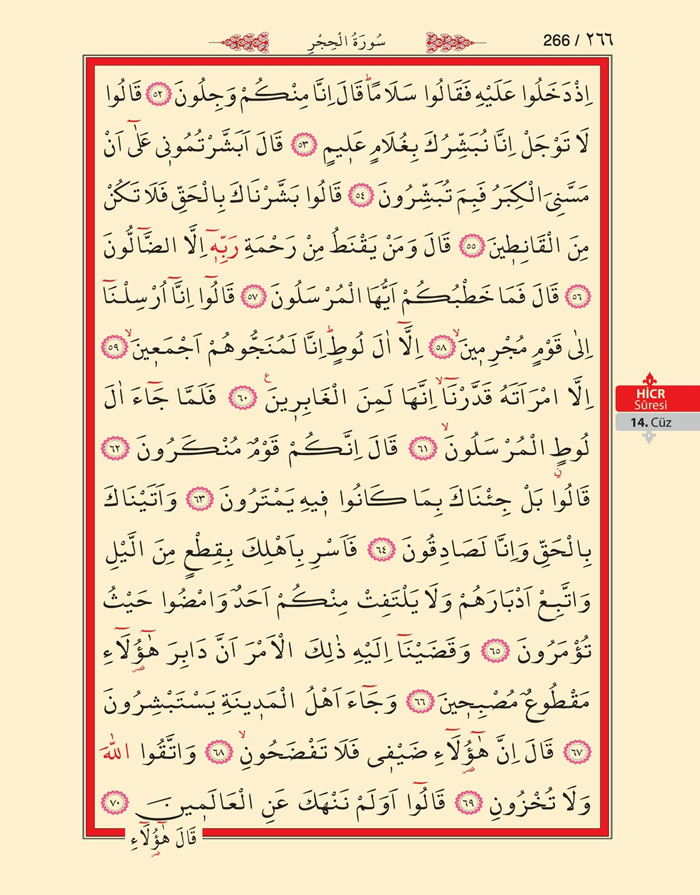 266 / ٢٦٦
سُورَةُ الْحِجْرِ
اِذْ دَخَلُوا عَلَيْهِ فَقَالُوا سَلَامًاۜ قَالَ اِنَّا مِنْكُمْ وَجِلُونَ ﴿٥٢﴾ قَالُوا
لَا تَوْجَلْ اِنَّا نُبَشِّرُكَ بِغُلَامٍ عَلٖيمٍ ﴿٥٣﴾ قَالَ اَبَشَّرْتُمُونٖي عَلٰٓى اَنْ
مَسَّنِيَ الْكِبَرُ فَبِمَ تُبَشِّرُونَ ﴿٥٤﴾ قَالُوا بَشَّرْنَاكَ بِالْحَقِّ فَلَا تَكُنْ
مِنَ الْقَانِطٖينَ ﴿٥٥﴾ قَالَ وَمَنْ يَقْنَطُ مِنْ رَحْمَةِ رَبِّهٖٓ اِلَّا الضَّٓالُّونَ
﴿٥٦﴾ قَالَ فَمَا خَطْبُكُمْ اَيُّهَا الْمُرْسَلُونَ ﴿٥٧﴾ قَالُٓوا اِنَّٓا اُرْسِلْنَٓا
اِلٰى قَوْمٍ مُجْرِمٖينَۙ ﴿٥٨﴾ اِلَّٓا اٰلَ لُوطٍۜ اِنَّا لَمُنَجُّوهُمْ اَجْمَعٖينَۙ ﴿٥٩﴾
اِلَّا امْرَاَتَهُ قَدَّرْنَٓاۙ اِنَّهَا لَمِنَ الْغَابِرٖينَࣖ ﴿٦٠﴾ فَلَمَّا جَٓاءَ اٰلَ
لُوطٍ الْمُرْسَلُونَۙ ﴿٦١﴾ قَالَ اِنَّكُمْ قَوْمٌ مُنْكَرُونَ ﴿٦٢﴾
قَالُوا بَلْ جِئْنَاكَ بِمَا كَانُوا فٖيهِ يَمْتَرُونَ ﴿٦٣﴾ وَاَتَيْنَاكَ
بِالْحَقِّ وَاِنَّا لَصَادِقُونَ ﴿٦٤﴾ فَاَسْرِ بِاَهْلِكَ بِقِطْعٍ مِنَ الَّيْلِ
وَاتَّبِعْ اَدْبَارَهُمْ وَلَا يَلْتَفِتْ مِنْكُمْ اَحَدٌ وَامْضُوا حَيْثُ
تُؤْمَرُونَ ﴿٦٥﴾ وَقَضَيْنَٓا اِلَيْهِ ذٰلِكَ الْاَمْرَ اَنَّ دَابِرَ هٰٓؤُ۬لَٓاءِ
مَقْطُوعٌ مُصْبِحٖينَ ﴿٦٦﴾ وَجَٓاءَ اَهْلُ الْمَدٖينَةِ يَسْتَبْشِرُونَ
﴿٦٧﴾ قَالَ اِنَّ هٰٓؤُ۬لَٓاءِ ضَيْفٖي فَلَا تَفْضَحُونِۙ ﴿٦٨﴾ وَاتَّقُوا اللّٰهَ
وَلَا تُخْزُونِ ﴿٦٩﴾ قَالُٓوا اَوَلَمْ نَنْهَكَ عَنِ الْعَالَمٖينَ ﴿٧٠﴾
قَالَ هٰٓؤُ۬لَٓاءِ
HİCR
Sûresi
14. Cüz